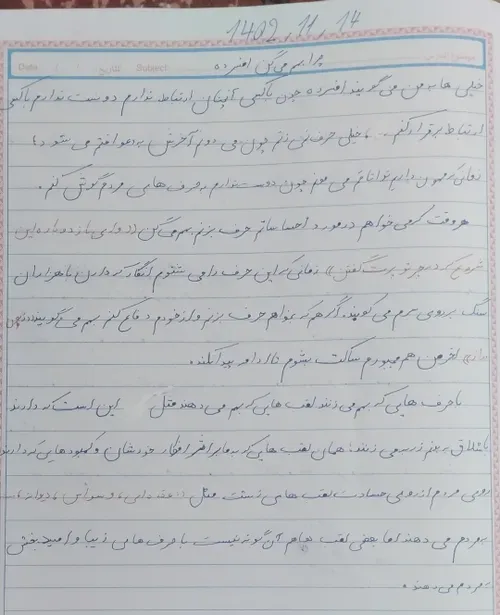 1402, 11, 14
Date تاریخ Subject
چرا بهم می‌گن افسرده
خیلی ها به من می گویند افسرده چون باکسی آنچنان ارتباط ندارم دوست ندارم باکسی
ارتباط برقرار کنم. خیلی حرف نمی زنم چون می دونم آخرش به دعوا ختم می شود؛
زمانی که مهمون داریم تو اتاقم می مونم چون دوست ندارم به حرف های مردم گوش کنم.
هر وقت که می خواهم در مورد احساساتم حرف بزنم بهم می گن ((وای باز دوباره این
شروع کرد به چرت و پرت گفتن)) زمانی که این حرف را می شنوم انگار که دارن با هزاران
سنگ بر روی سرم می کوبند. اگر هم که بخواهم حرف بزنم و از خودم دفاع کنم بهم می گویند
داری آخر من هم مجبورم ساکت بشوم تا ادامه پیدا نکنه.
با حرف هایی که بهم می زنند لقب هایی که بهم می دهند مثل این است که دارند
با شلاق به بدنم ضربه می زنند؛ همان لقب هایی که به ما بر اثر افکار خودشان و کمبود هایی که دارند
روی مردم از روی حسادت لقب های زشت مثل ((عقده ای، وسواس، دیوانه
به مردم می دهند اما بعضی لقب ها هم آن گونه نیست با حرف های زیبا و امید بخش
به مردم می دهند.